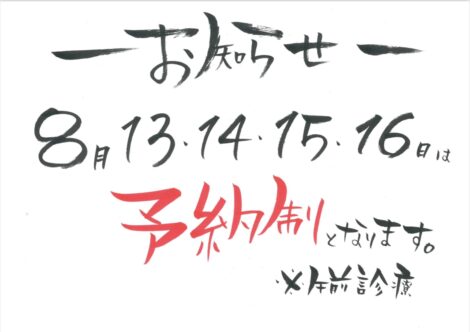 ーお知らせー
8月13・14・15・16日は
予約制となります。
※午前診療